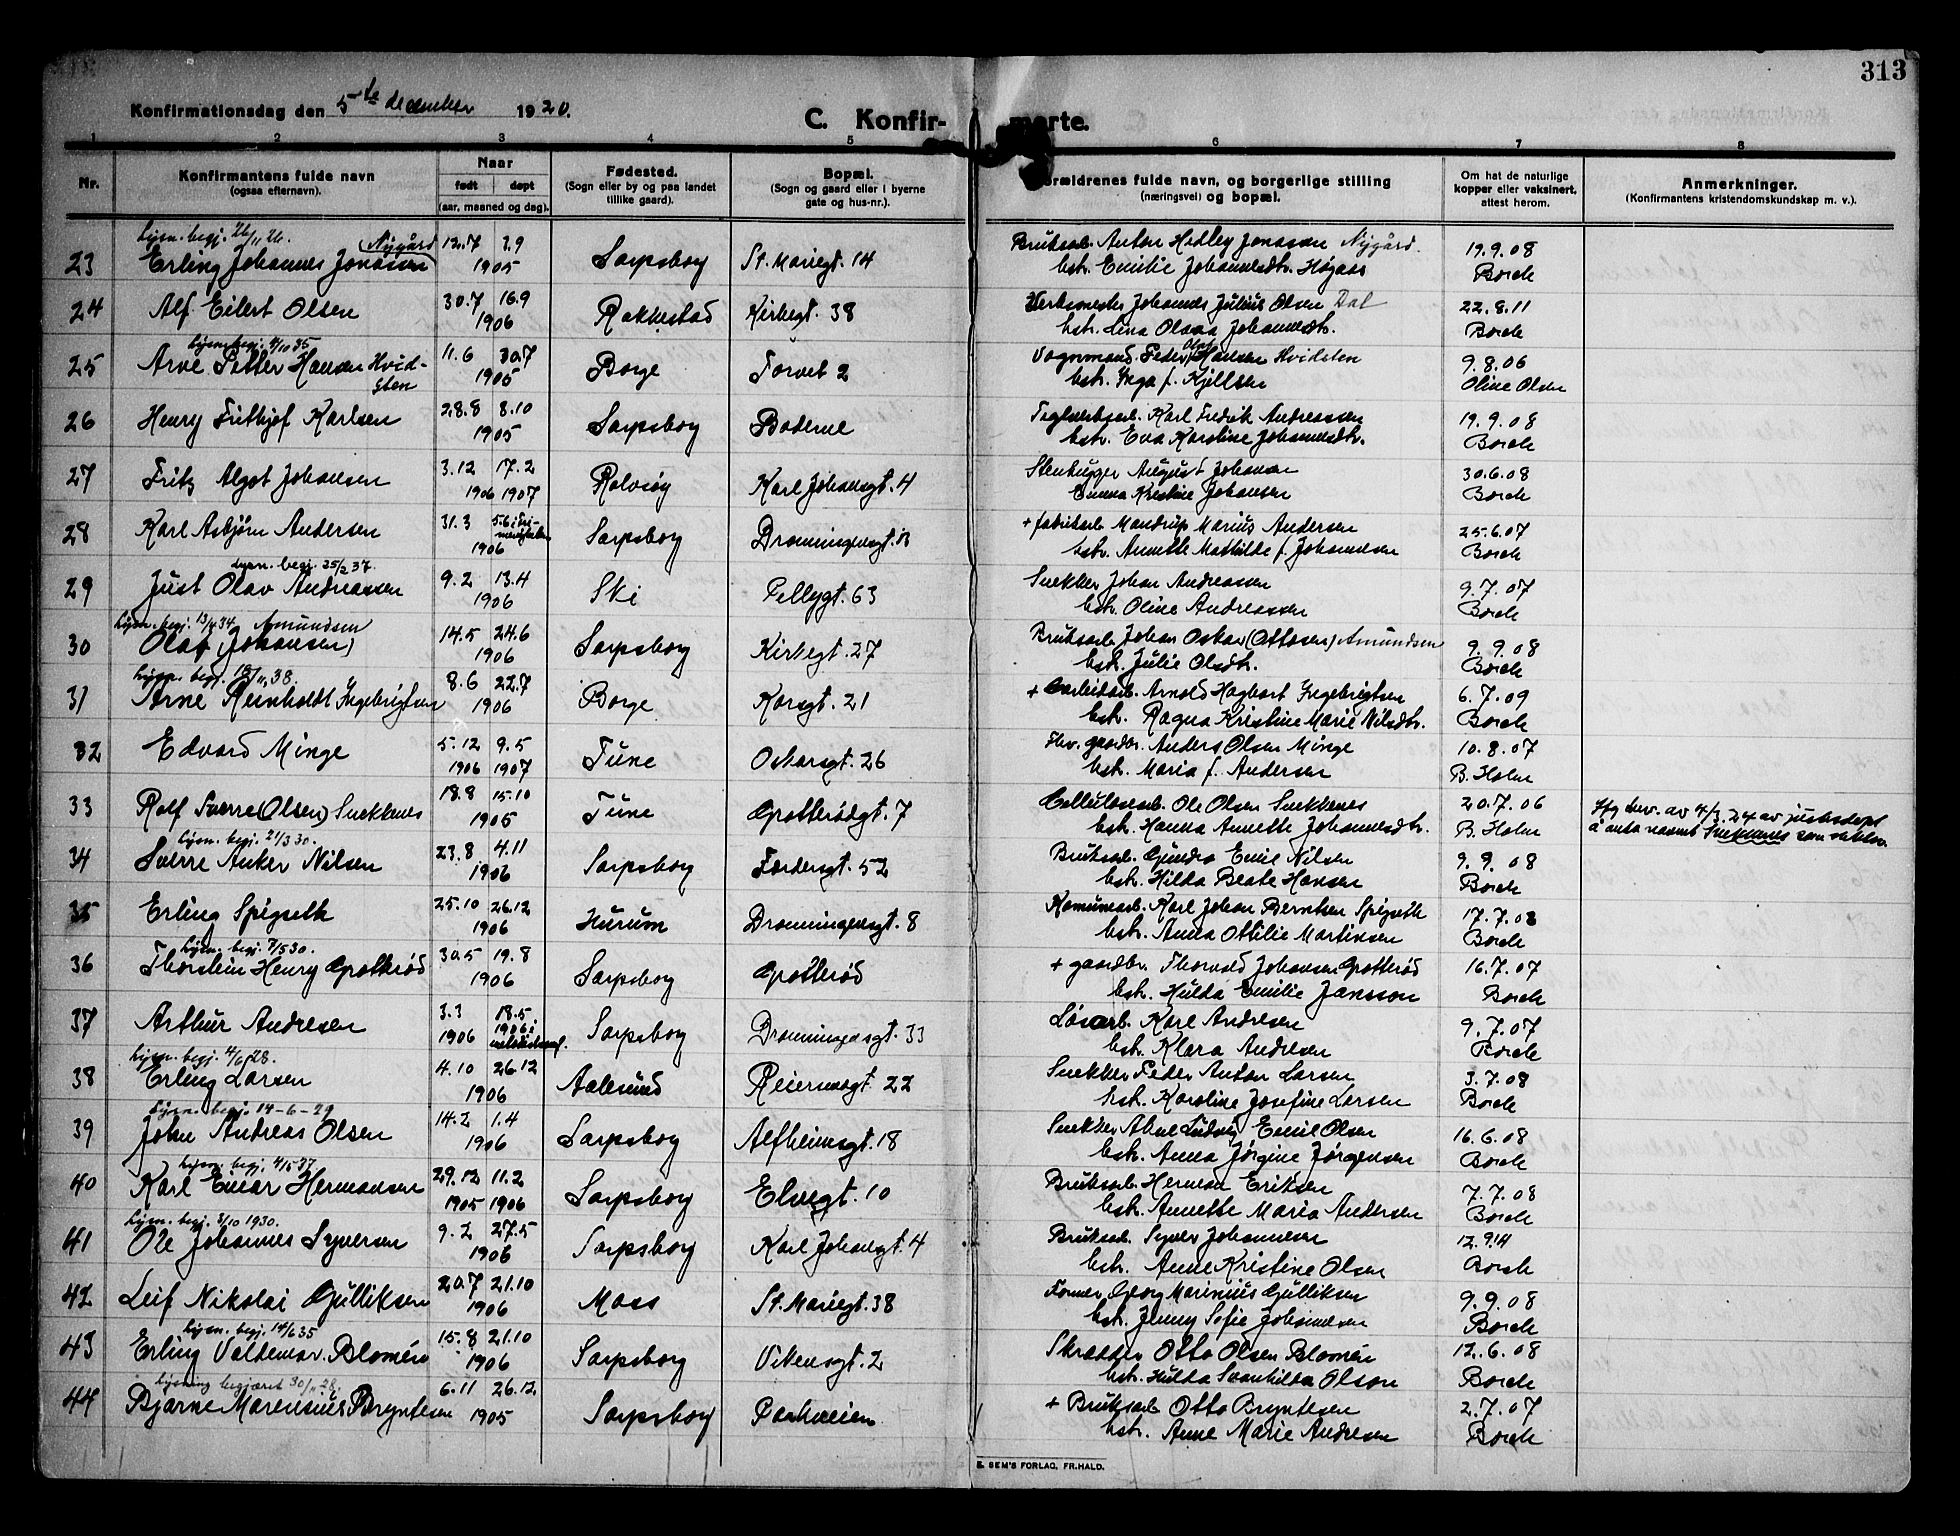 313
Konfirmationsdag den 5te december 1920.
C. Konfir- merte.
1 2 3 4 5 6 7 8
Nr.
Konfirmantens fulde navn
(ogsaa efternavn).
Naar
født døpt
(aar, maaned og dag).
Fødested.
(Sogn eller by og paa landet
tillike gaard).
Bopæl.
(Sogn og gaard eller i byerne
gate og hus-nr.).
orældrenes fulde navn, og borgerlige stilling
(næringsvei) og bopæl.
Om hat de naturlige
kopper eller vaksinert,
attest herom.
Anmerkninger.
(Konfirmantens kristendomskundskap m. v.).
Lysn. begj. 26/11 26. (Nygård
23 Erling Johannes Jonassen) 12.7 3.9 1905 Sarpsborg St. Mariegt. 14 Bruksarb. Anton Hedley Jonassen Nygård. 19.9.08
hstr. Emilie Johannesdtr. Høgaas Borch
24 Alf Eilert Olsen 30.7 16.9 1906 Rakkestad Kirkegt. 38 Verksmester Johannes Julius Olsen Dal 22.8.11
hstr. Lina Olava Johannesdtr. Borch
Lysn. begj. 4/10 35
25 Arne Petter Hansen Hvid- 11.6 30.7 1905 Borge Torvet 2 Vognmand Peder Olaf Hansen Hvidsten 9.8.06
sten hstr. Inga f. Kjellsen Oline Olsen
26 Henry Frithjof Karlsen 28.8 8.10 1905 Sarpsborg Boderne Teglverksarb. Karl Fredrik Andreassen 19.9.08
hstr. Eva Karoline Johannesdtr. Borch
27 Fritz Algot Johansen 3.12 17.2 1906 1907 Rolvsøy Karl Johansgt. 4 Stenhugger August Johansen 30.6.08
Emma Kristine Johansen Borch
28 Karl Asbjørn Andersen 31.3 5.6 i Fri-menigheten 1906 Sarpsborg Dronningensgt. + fabrikarb. Mandrup Marius Andersen 25.6.07
hstr. Annette Mathilde f. Johannesen Borch
Lysn. begj. 25/2 37.
29 Just Olav Andreassen 9.2 13.4 1906 Ski Pellygt. 63 Snekker Johan Andreassen 9.7.07
hstr. Oline Andreassen Borch
Lysn. begj. 13/4 34 Amundsen
30 Olaf (Johansen) 14.5 24.6 1906 Sarpsborg Kirkegt. 27 Bruksarb. Johan Oskar (Ottosen) Amundsen 9.9.08
hstr. Julie Olsdtr. Borch
Lysn. begj. 18/11 38.
31 Arne Reinholdt Ingebrigtsen 8.6 22.7 1906 Borge Korsgt. 21 + Arnold Hagbart Ingebrigtsen 6.7.09
hstr. Ragna Kristine Marie Nilsdtr. Borch
32 Edvard Minge 5.12 9.5 1906 1907 Tune Oskarsgt. 26 Fhv. gaardbr. Anders Olsen Minge 10.8.07
hstr. Maria f. Andersen B. Holm
33 Rolf Sverre (Olsen) Snekkenes 18.8 15.10 1905 Tune Grotterødgt. 7 Cellulosearb. Ole Olsen Snekkenes 20.7.06
hstr. Hanna Annette Johannesdtr. B. Holm
Ifg bev. av 4/3.24 av justisdept
å anta navnet Snekkenes som slektsn.
Lysn. begj. 21/3 30.
34 Sverre Anker Nilsen 23.8 4.11 1906 Sarpsborg Færdersgt. 52 Bruksarb. Gundro Emil Nilsen 9.9.08
hstr. Hilda Beate Hansen Borch
35 Erling Spigseth 25.10 26.12 1906 Hurum Dronningensgt. 8 Komunearb. Karl Johan Berntsen Spigseth 17.7.08
hstr. Anna Ottilie Martinsen Borch
Lysn. begj. 7/5 30.
36 Thorstein Henry Grotterød 30.5 19.8 1906 Sarpsborg Grotterød + gaardbr. Thorvald Johansen Grotterød 16.7.07
hstr. Hulda Emilie Jansson Borch
37 Arthur Andresen 3.3 18.5 1906 1906 i Sarpsborg Dronningensgt. 33 Løsarb. Karl Andresen 9.7.07
hstr. Klara Andresen Borch
Lysn. begj. 4/6 28.
38 Erling Larsen 4.10 26.12 1906 Aalesund Reiersensgt 22 Snekker Peder Anton Larsen 3.7.08
hstr. Karoline Josefine Larsen Borch
Lysn. begj. 14-6-29
39 John Andreas Olsen 14.2 1.4 1906 Sarpsborg Alfheimsgt. 18 Snekker Abel Ludvig Emil Olsen 16.6.08
hstr. Anna Jørgine Jørgensen Borch
Lysn. begj. 4/5 37
40 Karl Einar Hermansen 29.12 11.2 1905 1906 Sarpsborg Elvegt. 10 Bruksarb. Herman Eriksen 7.7.08
hstr. Annette Maria Andersen Borch
Lysn. begj. 8/10 1930.
41 Ole Johannes Syversen 9.2 27.5 1906 Sarpsborg Karl Johansgt. 4 Bruksarb. Syver Johannesen 12.9.14
hstr. Anne Kristine Olsen Borch
42 Leif Nikolai Gulliksen 20.7 21.10 1906 Moss St. Mariegt. 38 Former Georg Marinius Gulliksen 9.9.08
hstr. Jenny Sofie Johannesen Borch
Lysn. begj. 14/6 35
43 Erling Valdemar Blomén 15.8 21.10 1906 Sarpsborg Vikensgt. 2 Skrædder Otto Olsen Blomén 12.6.08
hstr. Hulda Svanhilda Olson Borch
Lysning begjæret 30/11 28.
44 Bjarne Marensius Bryntesen 6.11 26.12 1905 Sarpsborg Parkveien + Bruksarb. Otto Bryntesen 2.7.07
hstr. Anne Marie Andresen Borch
E. SEM'S FORLAG, FR.HALD.